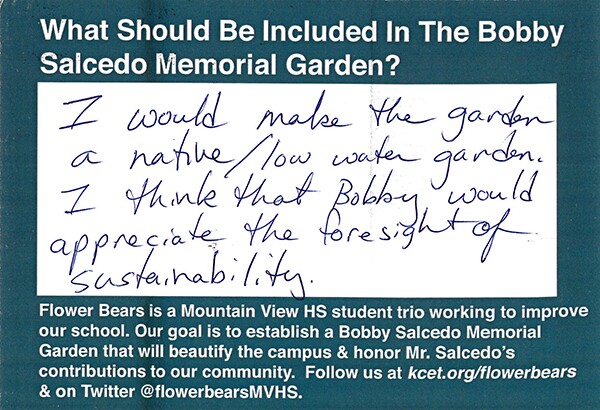 What Should Be Included In The Bobby
Salcedo Memorial Garden?
I would make the garden
a native/low water garden.
I think that Bobby would
appreciate the foresight of
sustainability.
Flower Bears is a Mountain View HS student trio working to improve
our school. Our goal is to establish a Bobby Salcedo Memorial
Garden that will beautify the campus & honor Mr. Salcedo's
contributions to our community. Follow us at kcet.org/flowerbears
& on Twitter @flowerbearsMVHS.